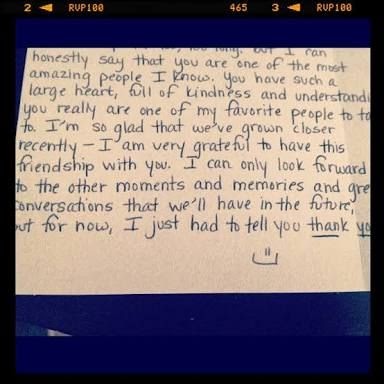 2 RVP100 465 3 RVP100
too long. but I can
honestly say that you are one of the most
amazing people I know. You have such a
large heart, full of kindness and understandi
you really are one of my favorite people to ta
to. I'm so glad that we've grown closer
recently – I am very grateful to have this
friendship with you. I can only look forward
to the other moments and memories and gre
conversations that we'll have in the future,
ut for now, I just had to tell you thank yo